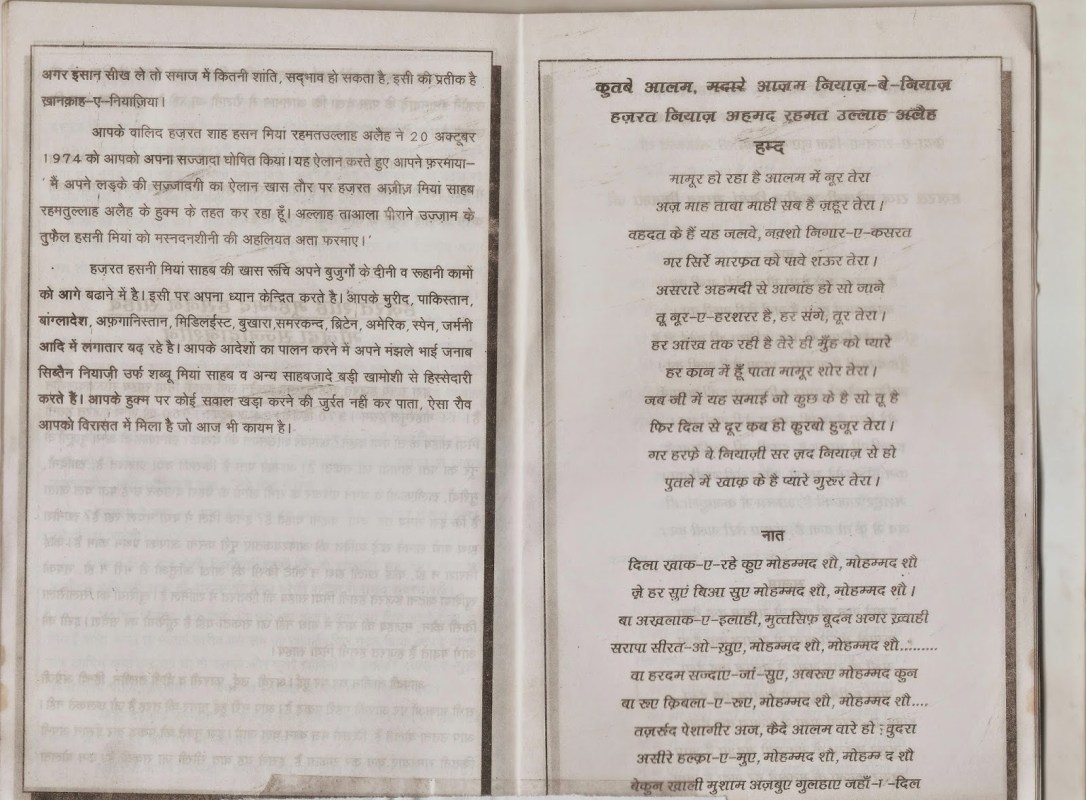 अगर इंसान सीख ले तो समाज में कितनी शांति, सद्भाव हो सकता है, इसी की प्रतीक है
ख़ानक़ाह-ए-नियाज़िया।
आपके वालिद हज़रत शाह हसन मियां रहमतउल्लाह अलैह ने 20 अक्टूबर
1974 को आपको अपना सज्जादा घोषित किया। यह ऐलान करते हुए आपने फ़रमाया-
' मैं अपने लड़के की सज़्जादगी का ऐलान खास तौर पर हज़रत अज़ीज़ मियां साहब
रहमतुल्लाह अलैह के हुक्म के तहत कर रहा हूँ। अल्लाह ताआला पीराने उज़्ज़ाम के
तुफ़ैल हसनी मियां को मस्नदनशीनी की अहलियत अता फरमाए।'
हज़रत हसनी मियां साहब की खास रूचि अपने बुजुर्गों के दीनी व रूहानी कामों
को आगे बढाने में है। इसी पर अपना ध्यान केन्द्रित करते है। आपके मुरीद, पाकिस्तान,
बांग्लादेश, अफ़गानिस्तान, मिडिलईस्ट, बुखारा,समरकन्द, ब्रिटेन, अमेरिक, स्पेन, जर्मनी
आदि में लगातार बढ़ रहे है। आपके आदेशों का पालन करने में अपने मंझले भाई जनाब
सिब्तैन नियाज़ी उर्फ शब्बू मियां साहब व अन्य साहबजादे बड़ी खामोशी से हिस्सेदारी
करते है। आपके हुक्म पर कोई सवाल खड़ा करने की जुर्रत नहीं कर पाता, ऐसा रौव
आपको विरासत में मिला है जो आज भी कायम है।
कुतबे आलम, मदारे आज़म नियाज़-बे-नियाज़
हज़रत नियाज़ अहमद रहमत उल्लाह अलैह
हम्द
मामूर हो रहा है आलम में नूर तेरा
अज़ माह ताबा माही सब है ज़हूर तेरा।
वहदत के हैं यह जलवे, नक़्शो निगार-ए-कसरत
गर सिर्रे मारफ़त को पावे शऊर तेरा।
असरारे अहमदी से आगाह हो सो जाने
तू नूर-ए-हरशरर है, हर संगे, तूर तेरा।
हर आंख तक रही है तेरे ही मुँह को प्यारे
हर कान में हूँ पाता मामूर शोर तेरा।
जब जी में यह समाई जो कुछ के है सो तू है
फिर दिल से दूर कब हो क़ुरबो हुजूर तेरा।
गर हरफ़े बे नियाज़ी सर ज़द नियाज़ से हो
पुतले में खाक़ के है प्यारे गुरूर तेरा।
नात
दिला ख़ाक-ए-रहे कुए मोहम्मद शौ, मोहम्मद शौ
ज़े हर सूएं बिआ सुए मोहम्मद शौ, मोहम्मद शौ।
बा अख़लाक-ए-इलाही, मुत्तसिफ़ बूदन अगर ख़्वाही
सरापा सीरत-ओ-ख़ुए, मोहम्मद शौ, मोहम्मद शौ.........
बा हरदम सज्दाए-जां-सुए, अबरूए मोहम्मद कुन
बा रूए क़िबला-ए-रूए, मोहम्मद शौ, मोहम्मद शौ....
तज़र्रुद पेशागीर अज, कैदे आलम वारे हां खुदरा
असीरे हल्क़ा-ए-मुए, मोहम्मद शौ, मोहम्म द शौ
बेकुन ख़ाली मुशाम अज़बुए गुलहाए जहाँ-दिल